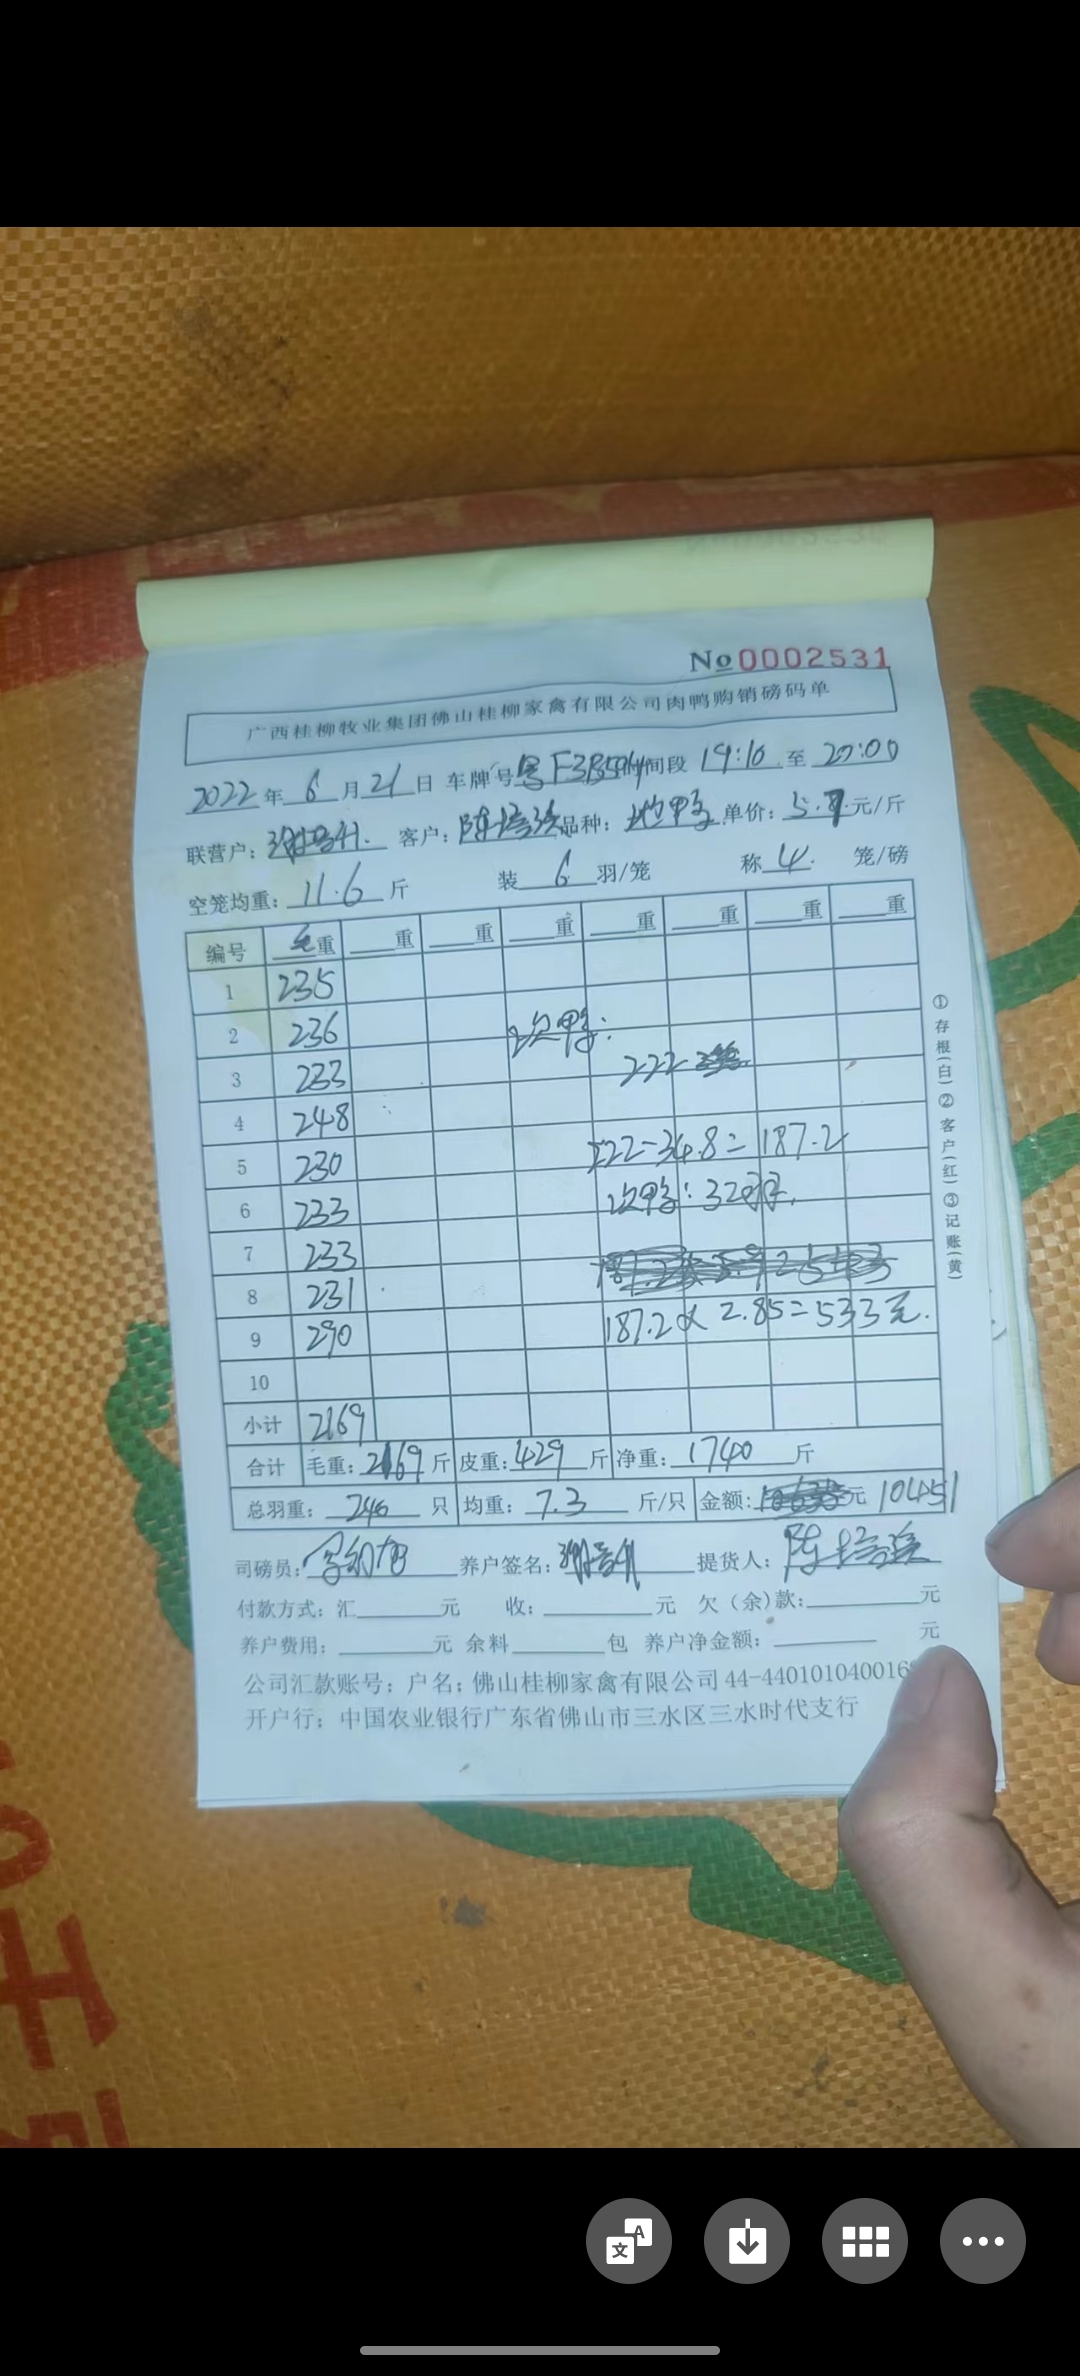 No 0002531
广西桂柳牧业集团佛山桂柳家禽有限公司肉鸭购销磅码单
2022年 6 月 21 日 车牌号 粤F3B 时间段 19:10 至 20:00
联营户: 客户: 陈 品种: 地鸭 单价: 5.9 元/斤
空笼均重: 11.6 斤 装 6 羽/笼 称 4 笼/磅
编号 毛重 重 重 重 重 重 重 重
1 235
2 236
次鸭:
3 233
222
4 248
5 230
222-34.8=187.2
6 233
次鸭: 32羽
7 233
8 231
187.2×2.85=533元.
9 290
10
小计 2169
合计 毛重: 2169 斤 皮重: 429 斤 净重: 1740 斤
总羽重: 240 只 均重: 7.3 斤/只 金额: 元 10451
司磅员: 养户签名: 提货人: 陈
付款方式: 汇 元 收: 元 欠(余)款: 元
养户费用: 元 余料 包 养户净金额: 元
公司汇款账号: 户名: 佛山桂柳家禽有限公司 44-440101040016
开户行: 中国农业银行广东省佛山市三水区三水时代支行
①存根(白)②客户(红)③记账(黄)